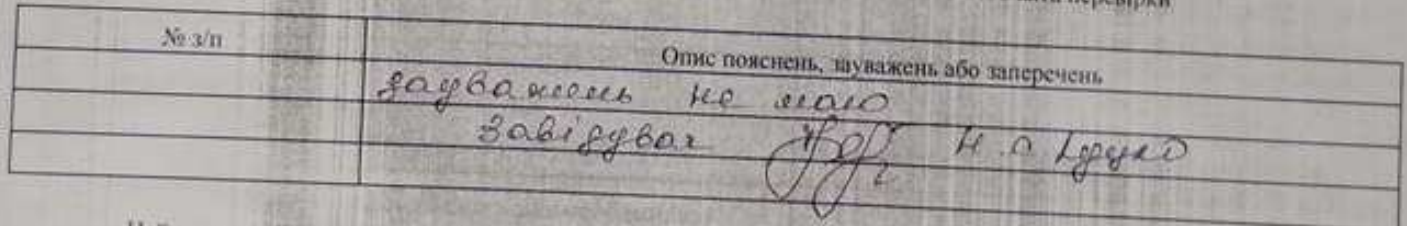 перевірки
№ з/п
Опис пояснень, зауважень або заперечень
зауважень не маю
Завідувач Н.О.